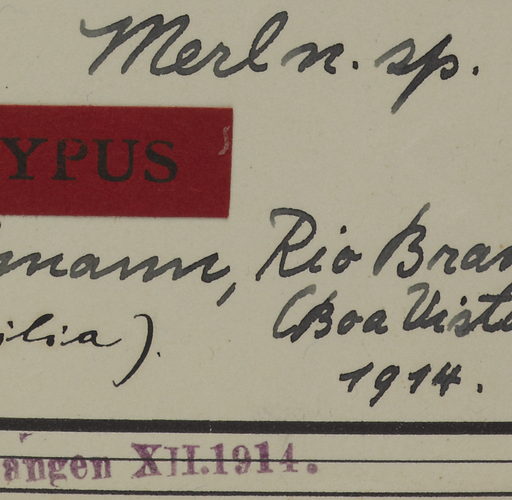 Merl n. sp.
YPUS
mann, Rio Bran
ilia). (Boa Vista
1914.
angen XII.1914.